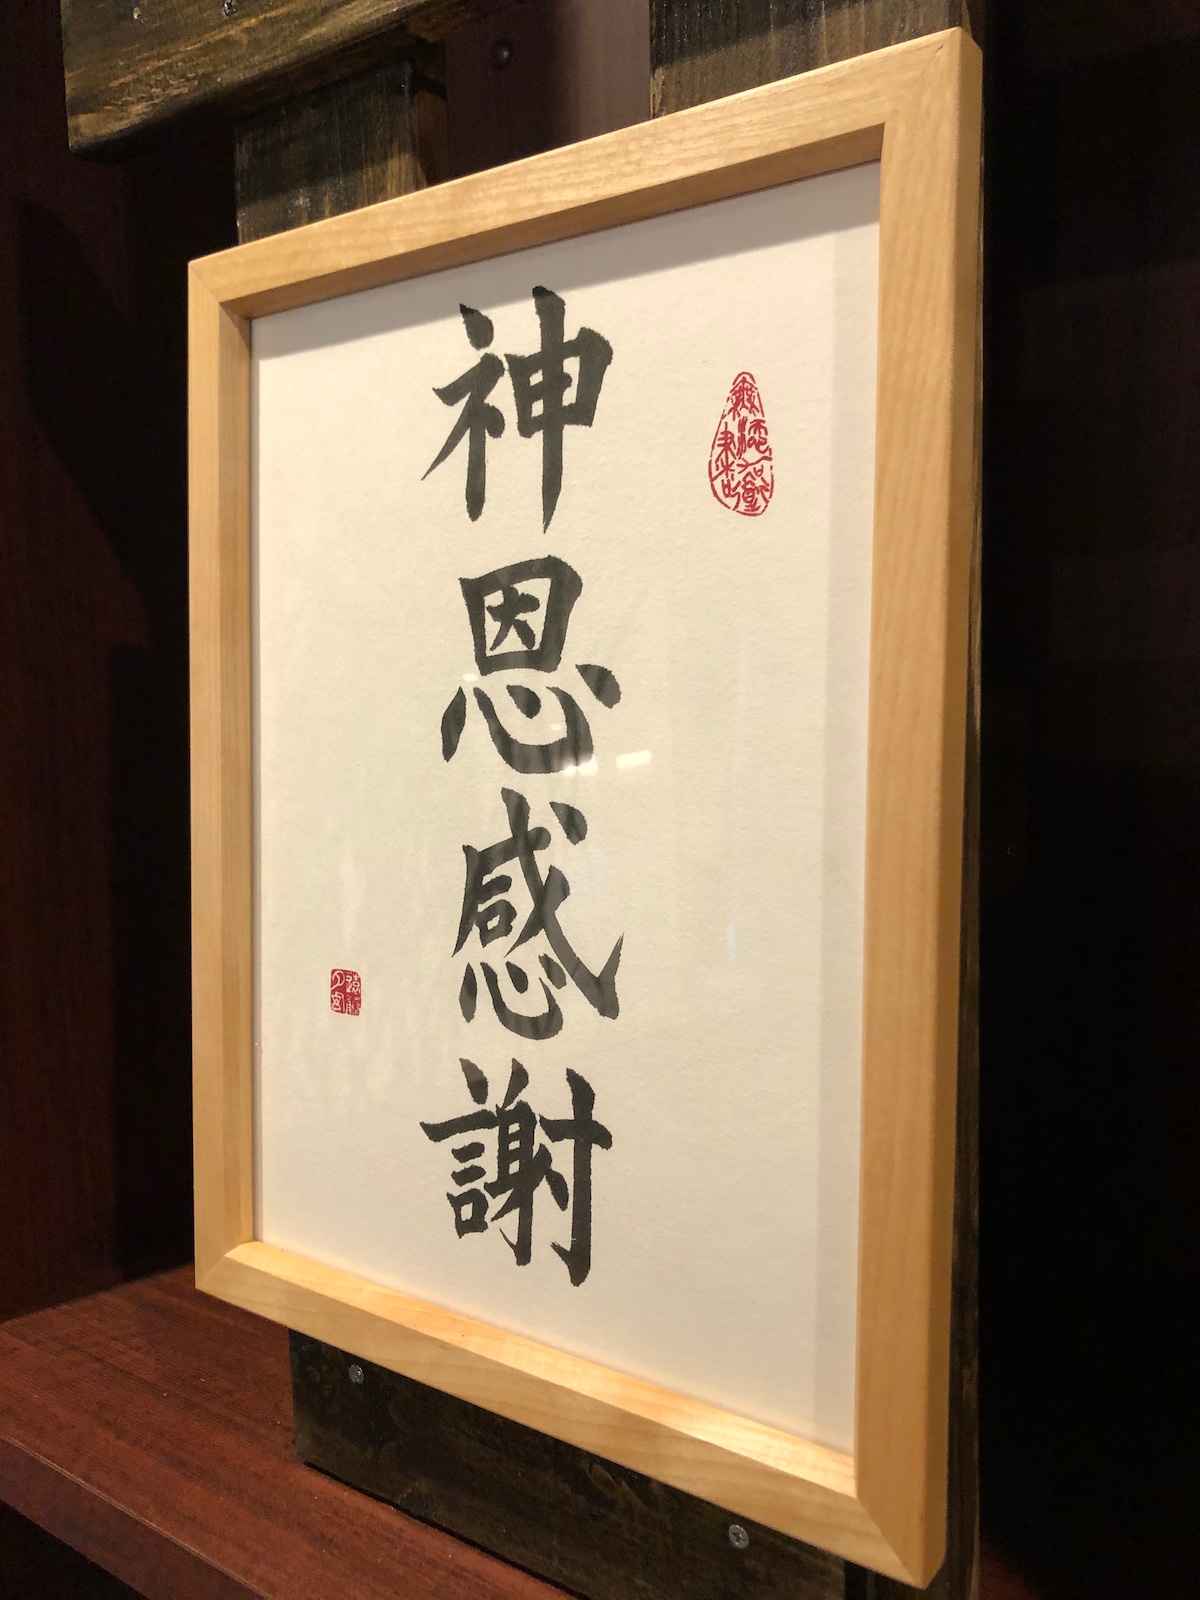 神恩感謝